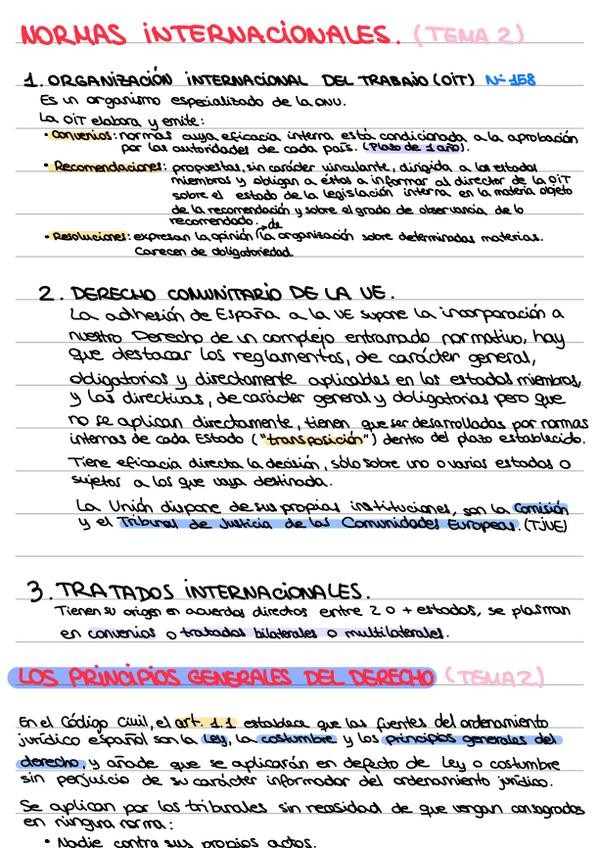 NORMAS INTERNACIONALES. (TEMA 2)
1. ORGANIZACIÓN INTERNACIONAL DEL TRABAJO (OIT) Nº 158
Es un organismo especializado de la ONU.
La OIT elabora y emite:
• Convenios: normas cuya eficacia interna está condicionada a la aprobación
por las autoridades de cada país. (Plazo de 1 año).
• Recomendaciones: propuestas, sin carácter vinculante, dirigida a los estados
miembros y obligan a éstos a informar al director de la OIT
sobre el estado de la legislación interna en la materia objeto
de la recomendación y sobre el grado de observancia de lo
recomendado.
• Resoluciones: expresan la opinión de la organización sobre determinadas materias.
Carecen de obligatoriedad.
2. DERECHO COMUNITARIO DE LA UE.
La adhesión de España a la UE supone la incorporación a
nuestro Derecho de un complejo entramado normativo, hay
que destacar los reglamentos, de carácter general,
obligatorios y directamente aplicables en los estados miembros,
y las directivas, de carácter general y obligatorias pero que
no se aplican directamente, tienen que ser desarrolladas por normas
internas de cada Estado ("transposición") dentro del plazo establecido.
Tiene eficacia directa la decisión, sólo sobre uno o varios estados o
sujetos a los que vaya destinada.
La Unión dispone de sus propias instituciones, son la Comisión
y el Tribunal de Justicia de las Comunidades Europeas. (TJUE)
3. TRATADOS INTERNACIONALES.
Tienen su origen en acuerdos directos entre 2 o + estados, se plasman
en convenios o tratados bilaterales o multilaterales.
LOS PRINCIPIOS GENERALES DEL DERECHO (TEMA 2)
En el Código Civil, el art. 1.1 establece que las fuentes del ordenamiento
jurídico español son la ley, la costumbre y los principios generales del
derecho, y añade que se aplicarán en defecto de ley o costumbre
sin perjuicio de su carácter informador del ordenamiento jurídico.
Se aplican por los tribunales sin necesidad de que vengan consagrados
en ninguna norma:
• Nadie contra sus propios actos.